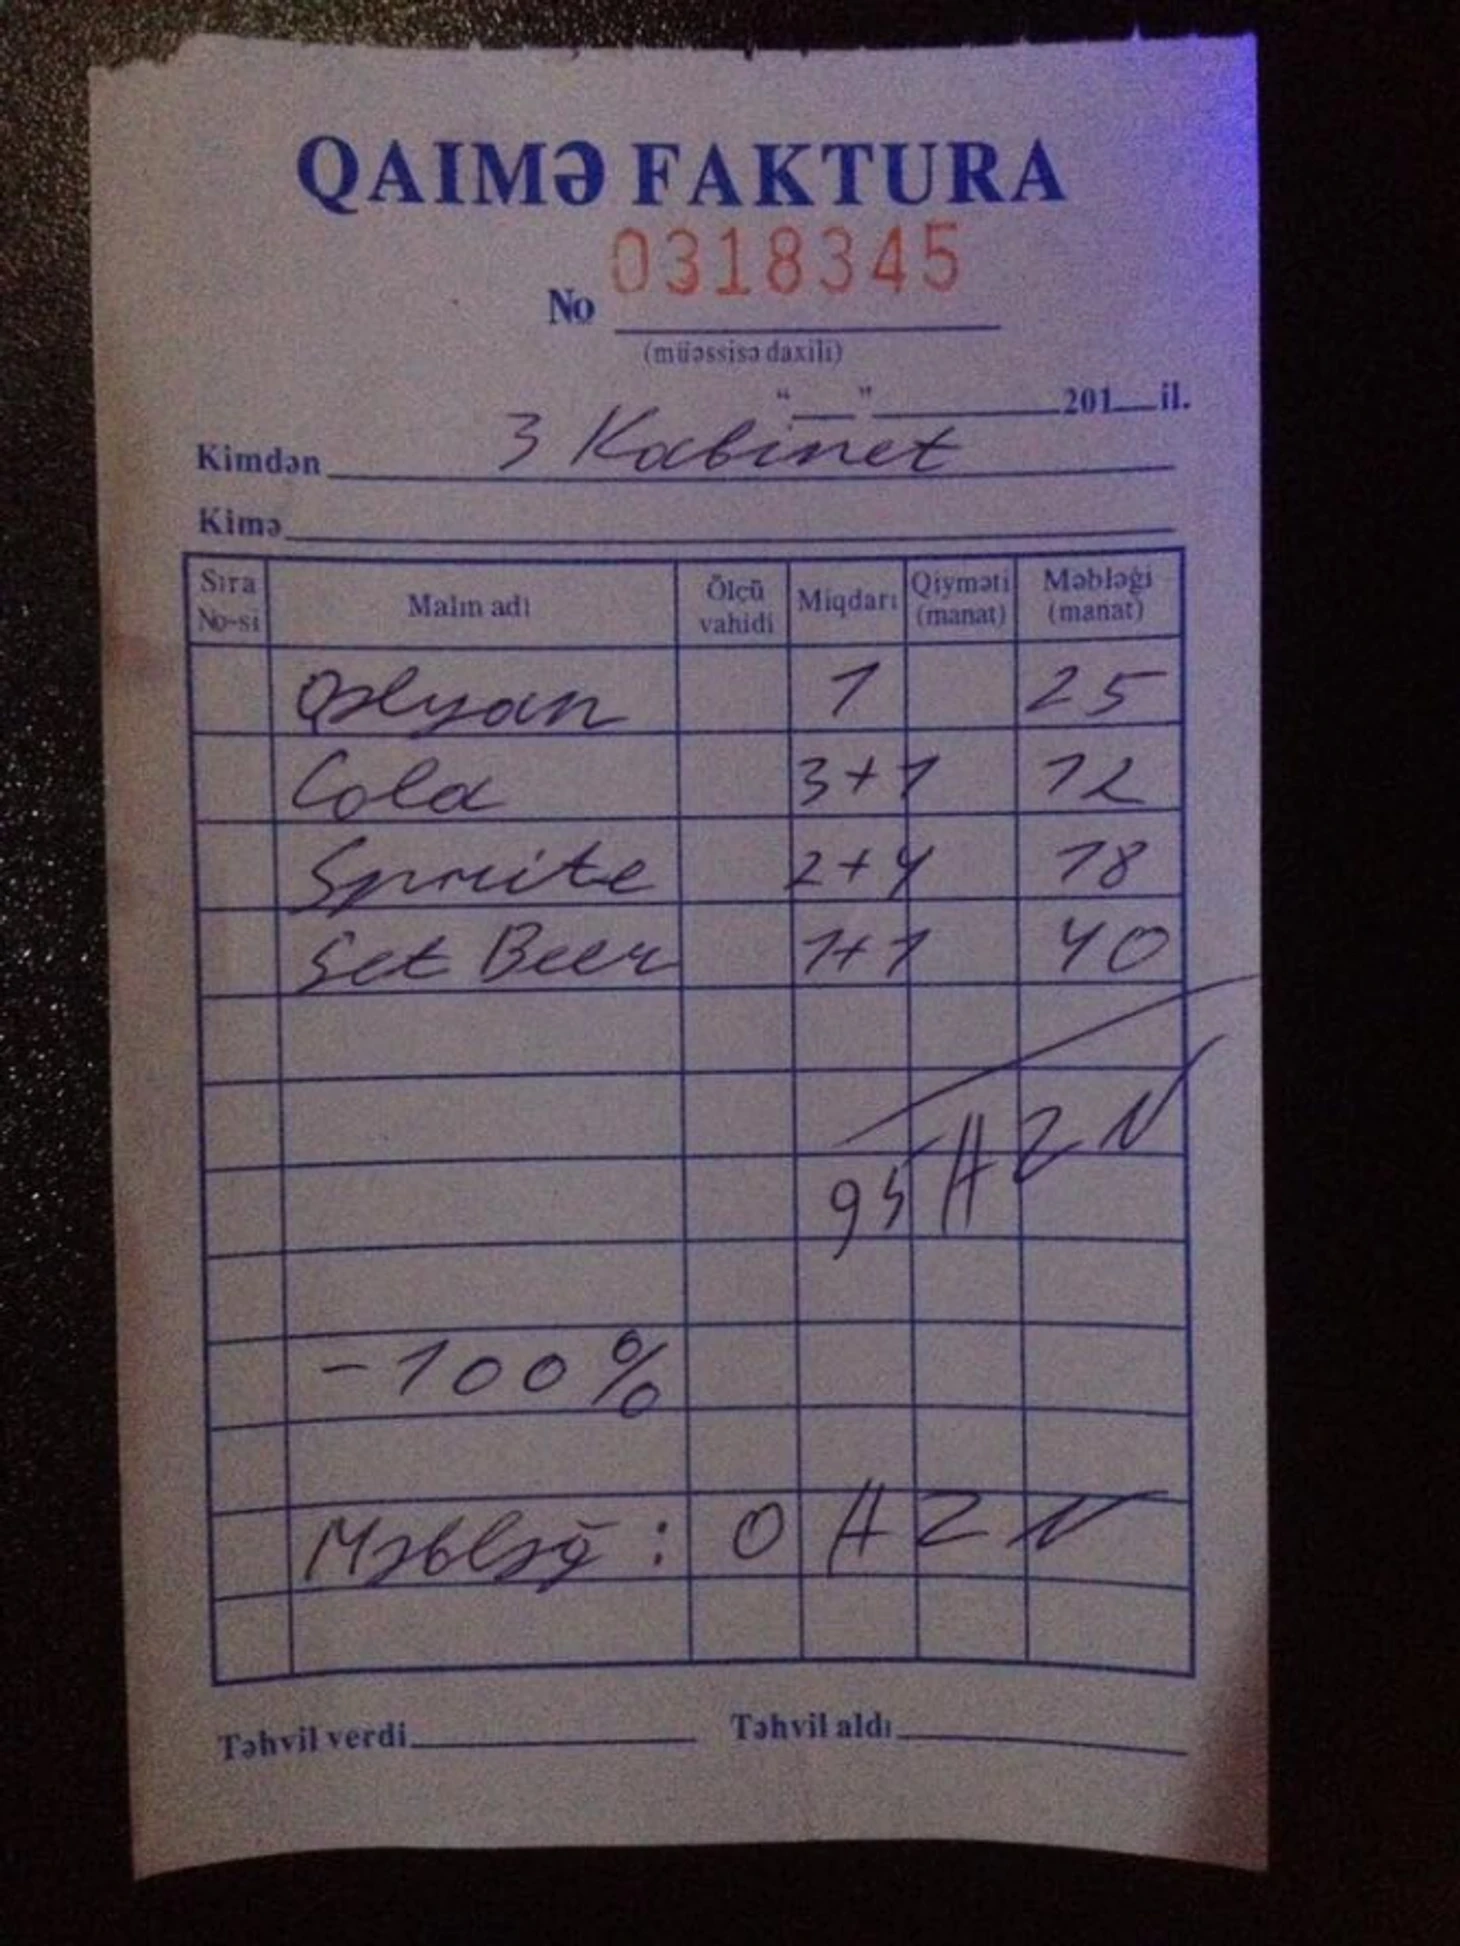 QAIMƏ FAKTURA
No 0318345
(müəssisə daxili)
“__”________201__il.
Kimdən 3 Kabinet
Kimə
Sıra No-si Malın adı Ölçü vahidi Miqdarı Qiyməti (manat) Məbləği (manat)
Qəlyan 1 25
Cola 3+1 12
Spruite 2+4 18
Set Beer 1+1 40
95 AZN
-100%
Məbləğ: 0 AZN
Təhvil verdi Təhvil aldı